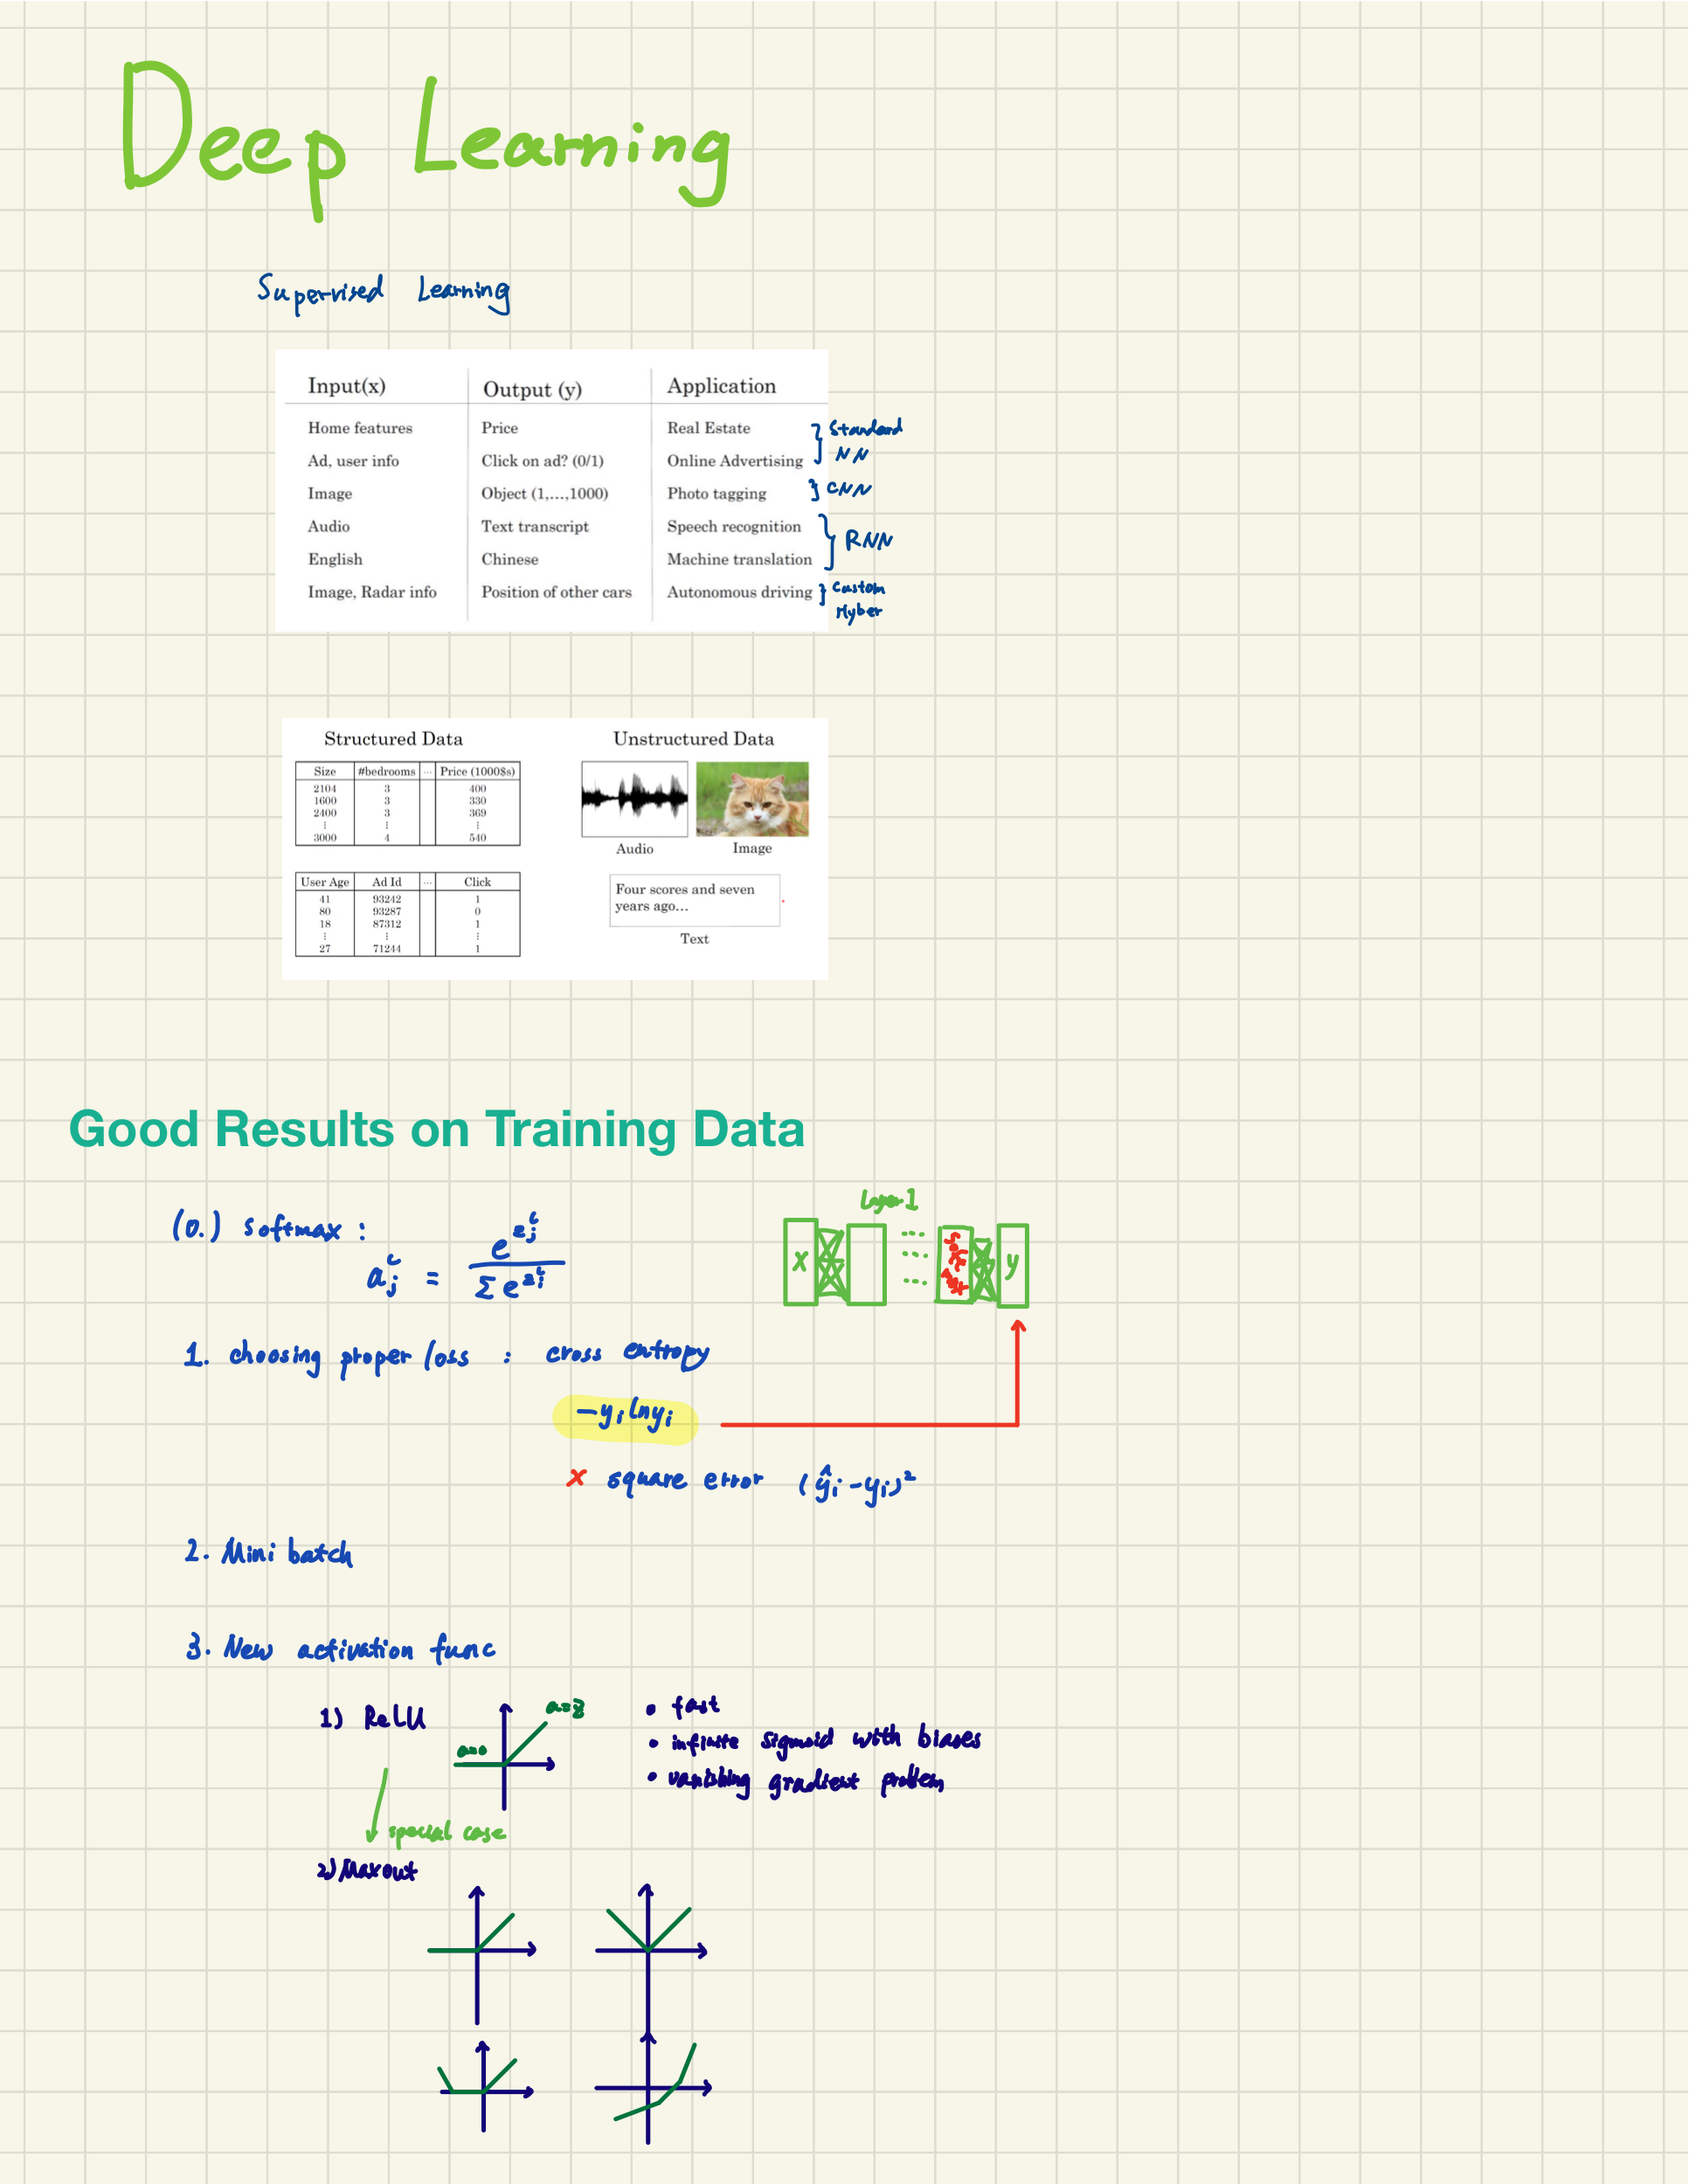 Deep Learning
Supervised Learning
Input(x) Output (y) Application
Home features Price Real Estate } Standard
Ad, user info Click on ad? (0/1) Online Advertising NN
Image Object (1,…,1000) Photo tagging } CNN
Audio Text transcript Speech recognition } RNN
English Chinese Machine translation
Image, Radar info Position of other cars Autonomous driving } Custom
Hyber
Structured Data
Size #bedrooms … Price (1000$s)
2104 3 400
1600 3 330
2400 3 369
⋮ ⋮ ⋮
3000 4 540
User Age Ad Id … Click
41 93242 1
80 93287 0
18 87312 1
⋮ ⋮ ⋮
27 71244 1
Unstructured Data
Audio Image
Four scores and seven
years ago…
Text
Good Results on Training Data
(0.) softmax :
a_j^L = e^{z_j^L} / Σ e^{z_i^L}
Layer 1
x .... y
1. choosing proper loss : cross entropy
-y_i ln y_i
x square error (ŷ_i - y_i)²
2. Mini batch
3. New activation func
1) ReLU
a=0
a=z
• fast
• infinite sigmoid with biases
• vanishing gradient problem
special case
2) Maxout